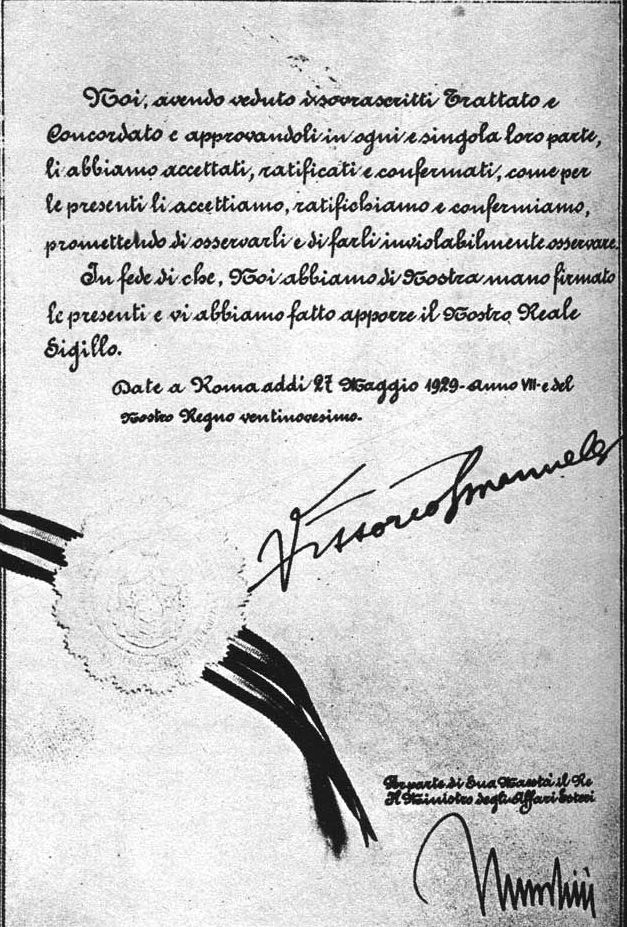 Noi, avendo veduto i sovrascritti Trattato e
Concordato e approvandoli in ogni e singola loro parte,
li abbiamo accettati, ratificati e confermati, come per
le presenti li accettiamo, ratifichiamo e confermiamo,
promettendo di osservarli e di farli inviolabilmente osservare.
In fede di che, Noi abbiamo di Nostra mano firmato
le presenti e vi abbiamo fatto apporre il Nostro Reale
Sigillo.
Date a Roma addi 27 Maggio 1929 - Anno VII - e del
Nostro Regno ventinovesimo.
Vittorio Emanuele
Per parte di Sua Maestà il Re
Il Ministro degli Affari Esteri